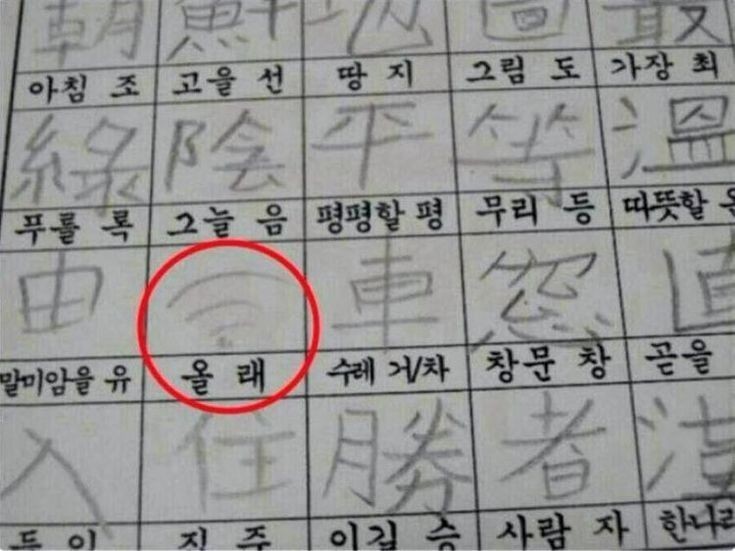 朝 鮮 地 圖 最
아침 조 고을 선 땅 지 그림 도 가장 최
綠 陰 平 等 溫
푸를 록 그늘 음 평평할 평 무리 등 따뜻할 온
由 車 窓 直
말미암을 유 올 래 수레 거/차 창문 창 곧을
入 住 勝 者 漢
이길 승 사람 자 한나라